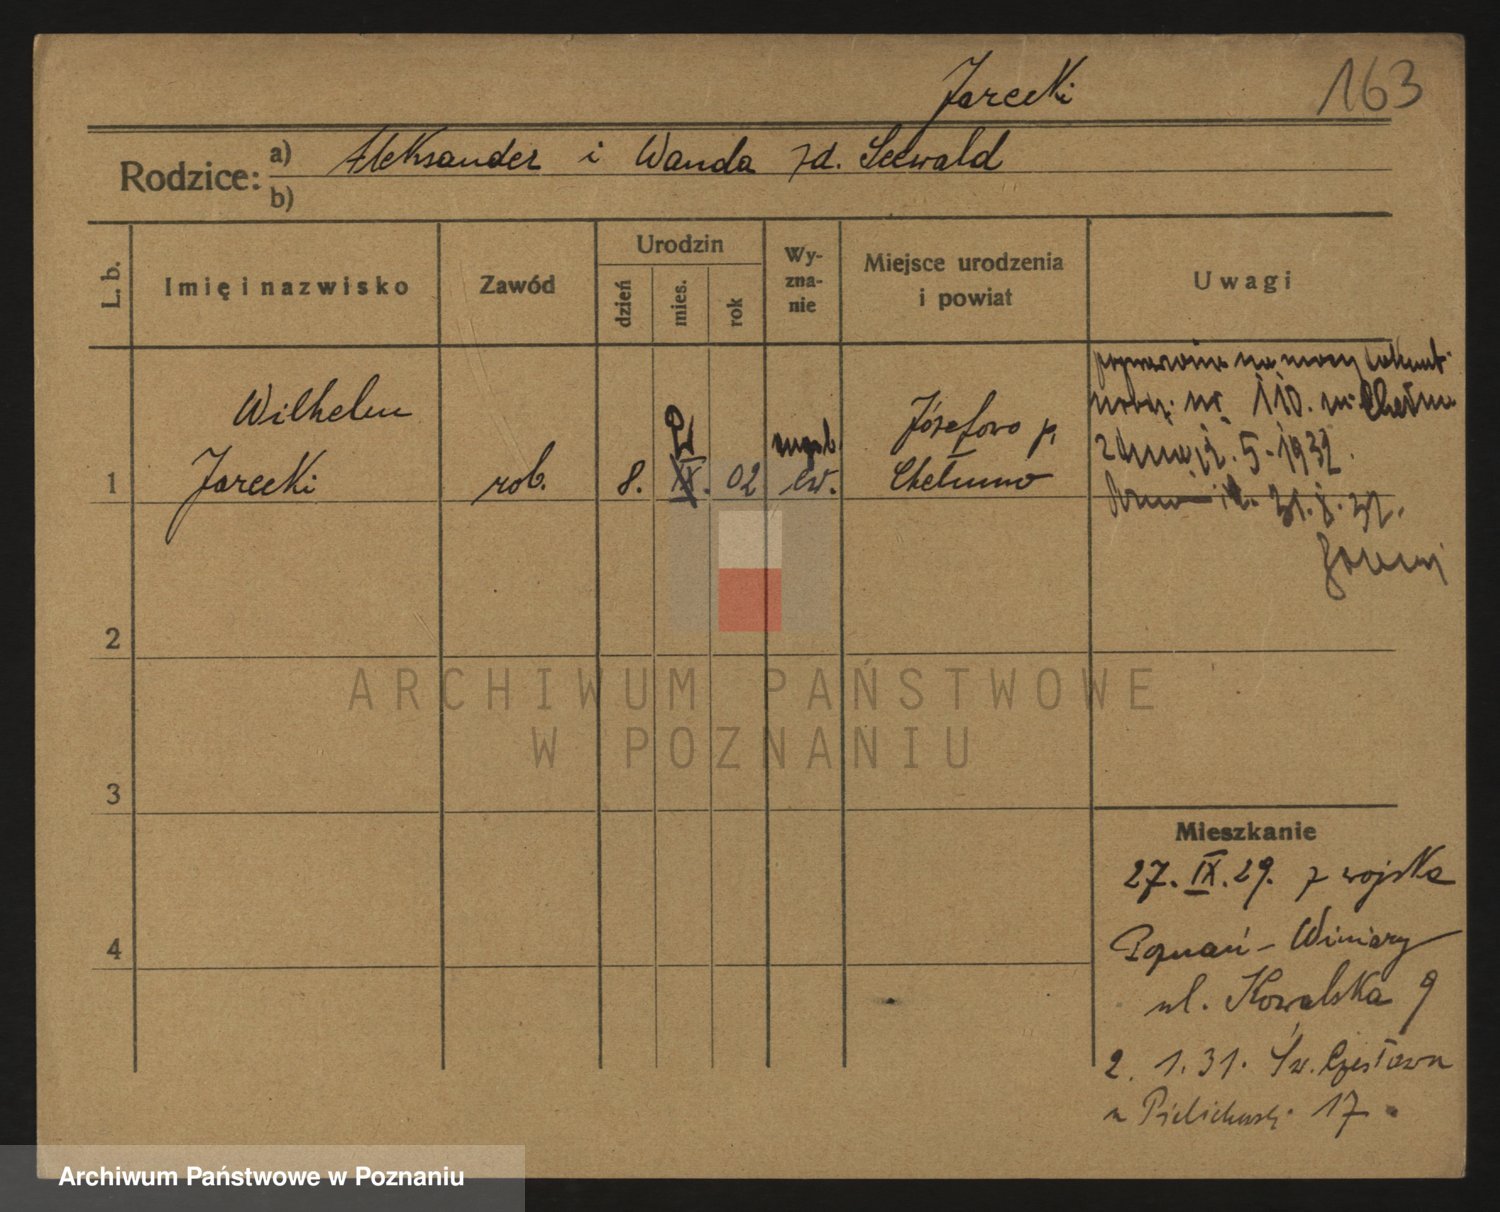 Jarecki 163
Rodzice: a) Aleksander i Wanda zd. Seewald
b)
L. b.
Imię i nazwisko
Zawód
Urodzin
dzień
mies.
rok
Wy-
zna-
nie
Miejsce urodzenia
i powiat
Uwagi
1
Wilhelm
Jarecki
rob.
8. IX. 02
ew.
Józefowo p.
Chełmno
nr 110.
5-1932.
2
3
4
Mieszkanie
27. IX. 29. z wojska
Poznań - Winiary
ul. Kowalska 9
2. 1. 31. Św. Czesława
17
ARCHIWUM PAŃSTWOWE
W POZNANIU
Archiwum Państwowe w Poznaniu